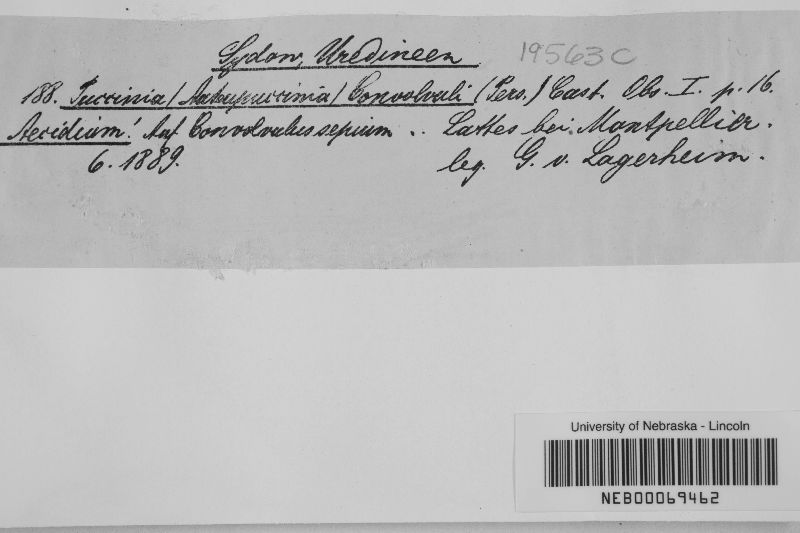 Sydow, Uredineen 19563C
188. Puccinia (Autopuccinia) Convolvuli (Pers.) Cast. Obs. I. p. 16.
Aecidium! Auf Convolvulus sepium .. Lattes bei Montpellier.
6. 1889. leg. G. v. Lagerheim.
University of Nebraska - Lincoln
NEB00069462